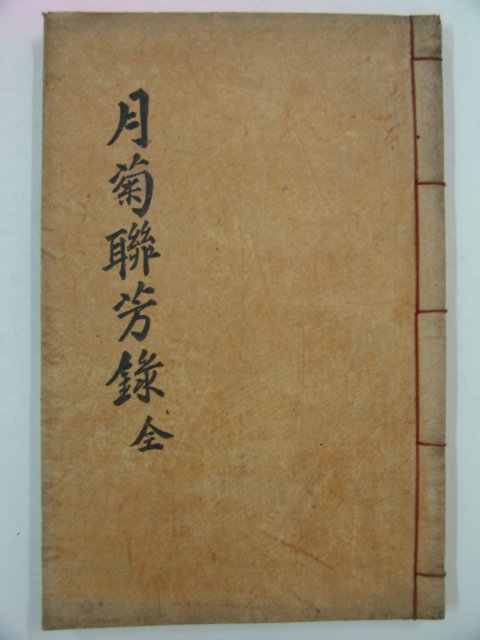 月菊聯芳錄 全